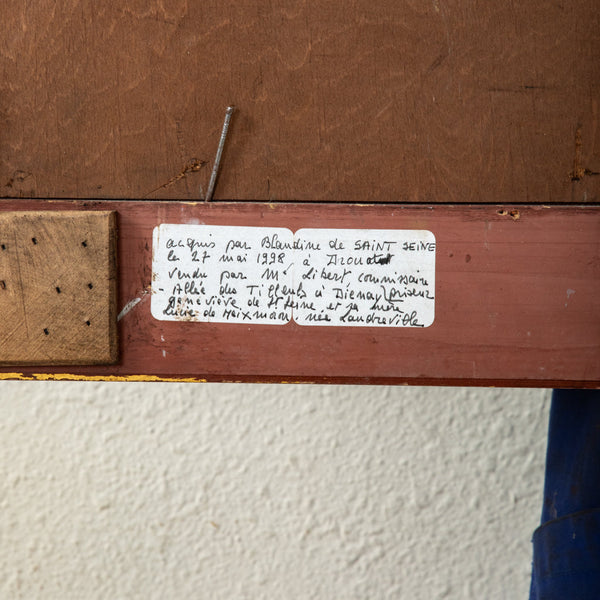 acquis par Blandine de SAINT SEINE
le 27 mai 1998 à Drouot
vendu par Me Libert, commissaire
- Allée des Tilleuls à Dienay (priseur
Geneviève de St Seine, et sa mère
Lucie de Meixmoron. née Landreville